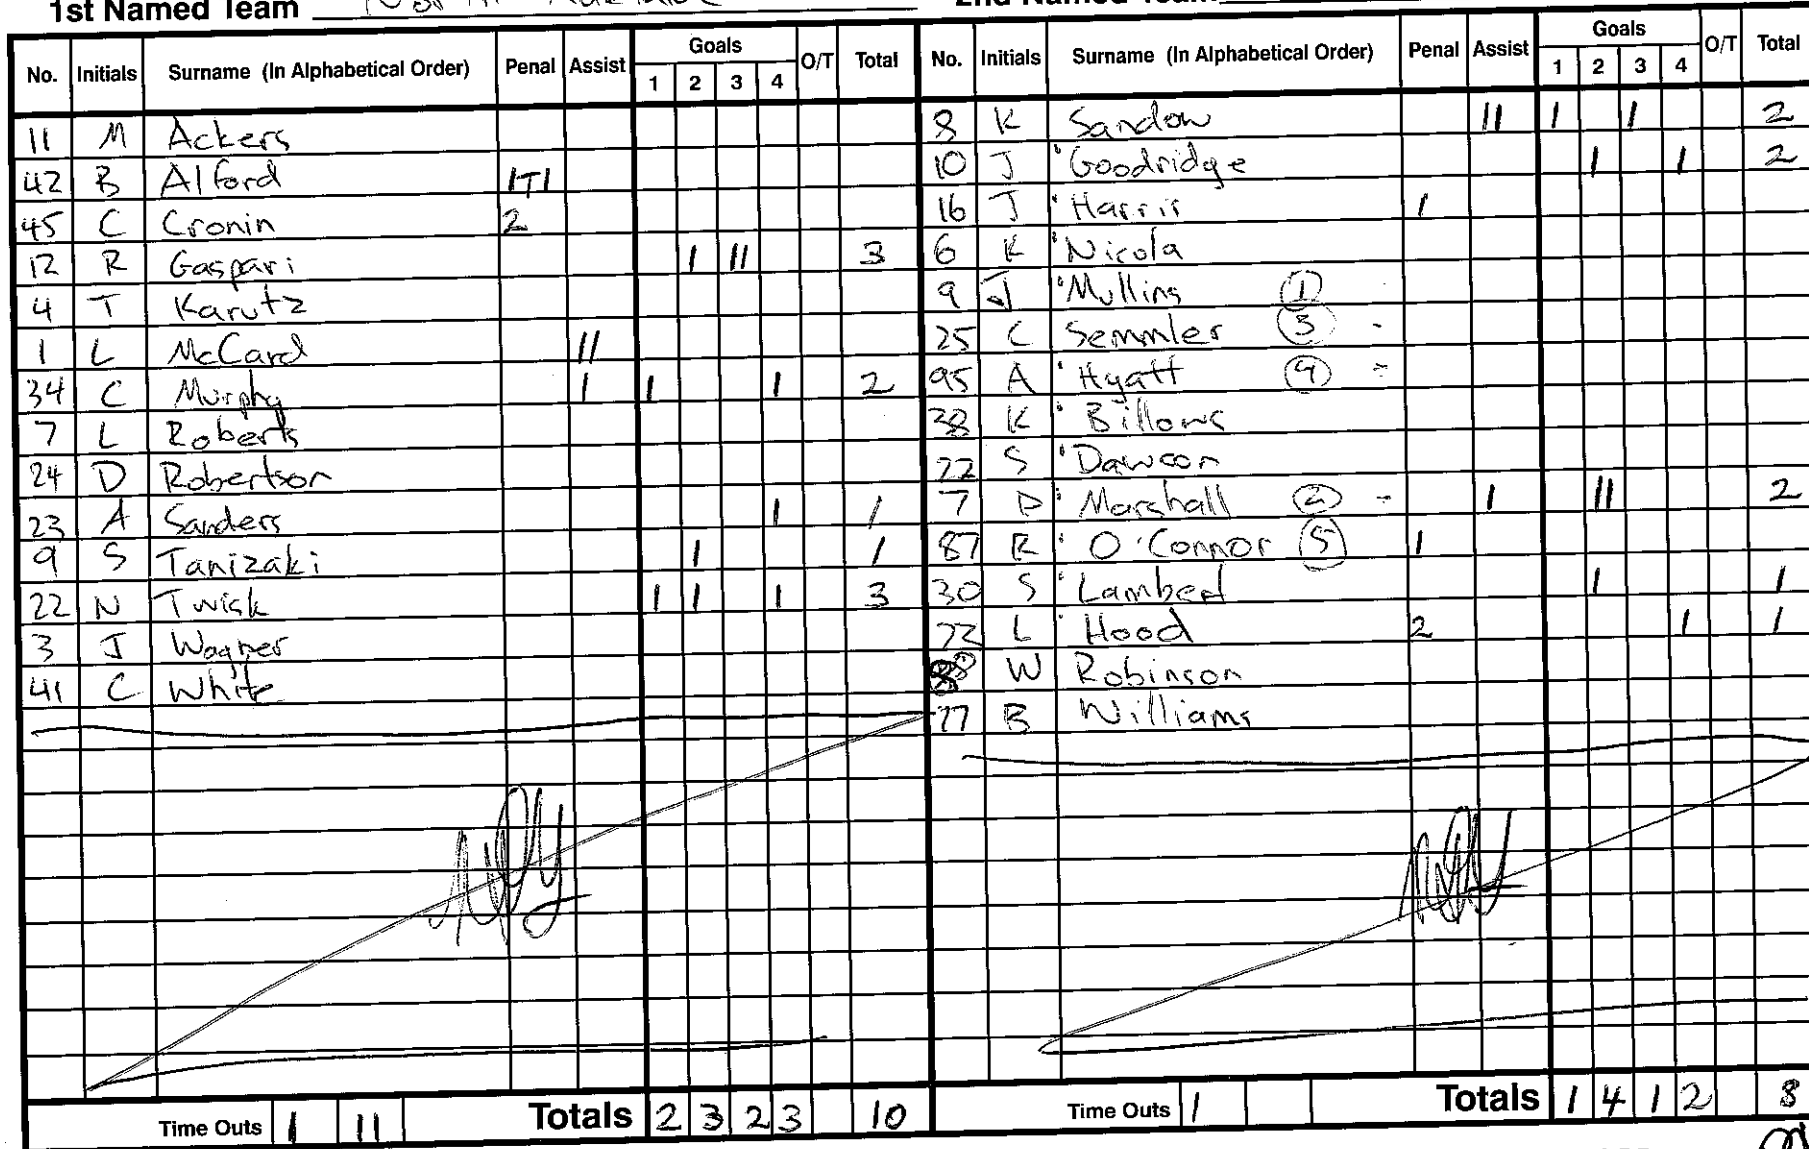 1st Named Team 2nd Named Team
No. Initials Surname (In Alphabetical Order) Penal Assist Goals 1 2 3 4 O/T Total
11 M Ackers
42 B Alford 1T1
45 C Cronin 2
12 R Gaspari 1 11 3
4 T Karutz
1 L McCard 11
34 C Murphy 1 1 1 2
7 L Roberts
24 D Robertson
23 A Sanders 1 1
9 S Tanizaki 1 1
22 N Twisk 1 1 1 3
3 J Wagner
41 C White
Time Outs 1 11 Totals 2 3 2 3 10
No. Initials Surname (In Alphabetical Order) Penal Assist Goals 1 2 3 4 O/T Total
8 K Sandow 11 1 1 2
10 J Goodridge 1 1 2
16 J Harris 1
6 K Nicola
9 J Mullins 1
25 C Semmler 3
95 A Hyatt
38 K Billows
S Dawson
7 Marshall 2 1 11 2
87 R O'Connor 5 1
30 S Lambert 1 1
72 L Hood 2 1 1
W Robinson
77 B Williams
Time Outs 1 Totals 1 4 1 2 8